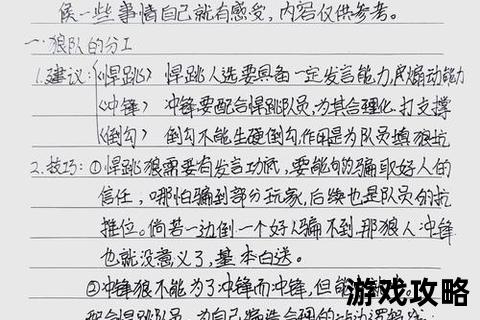 候一些事情自己就有感受，内容仅供参考。
一.狼队的分工
1.建议：《悍跳》 悍跳人选要具备一定发言能力，煽动能力
《冲锋》 冲锋要配合悍跳队员，为其合理化，打支撑
《倒勾》 倒勾不能生硬倒勾，作用是为队员填狼坑
2.技巧：①悍跳狼需要有发言功底，要能够骗取好人的
信任，哪怕骗到部分玩家，后续也是队员的抗
推位。倘若一边倒一个好人骗不到，那狼人冲锋
也就没意义了，基本白送。
②冲锋狼不能为了冲锋而冲锋，但能
配合悍跳队员，为自己
游戏攻略